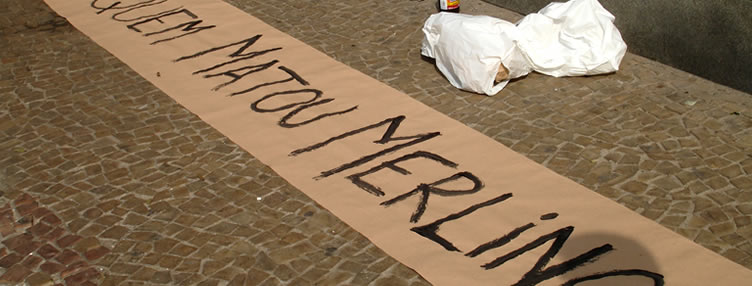 QUEM MATOU MERLiNO